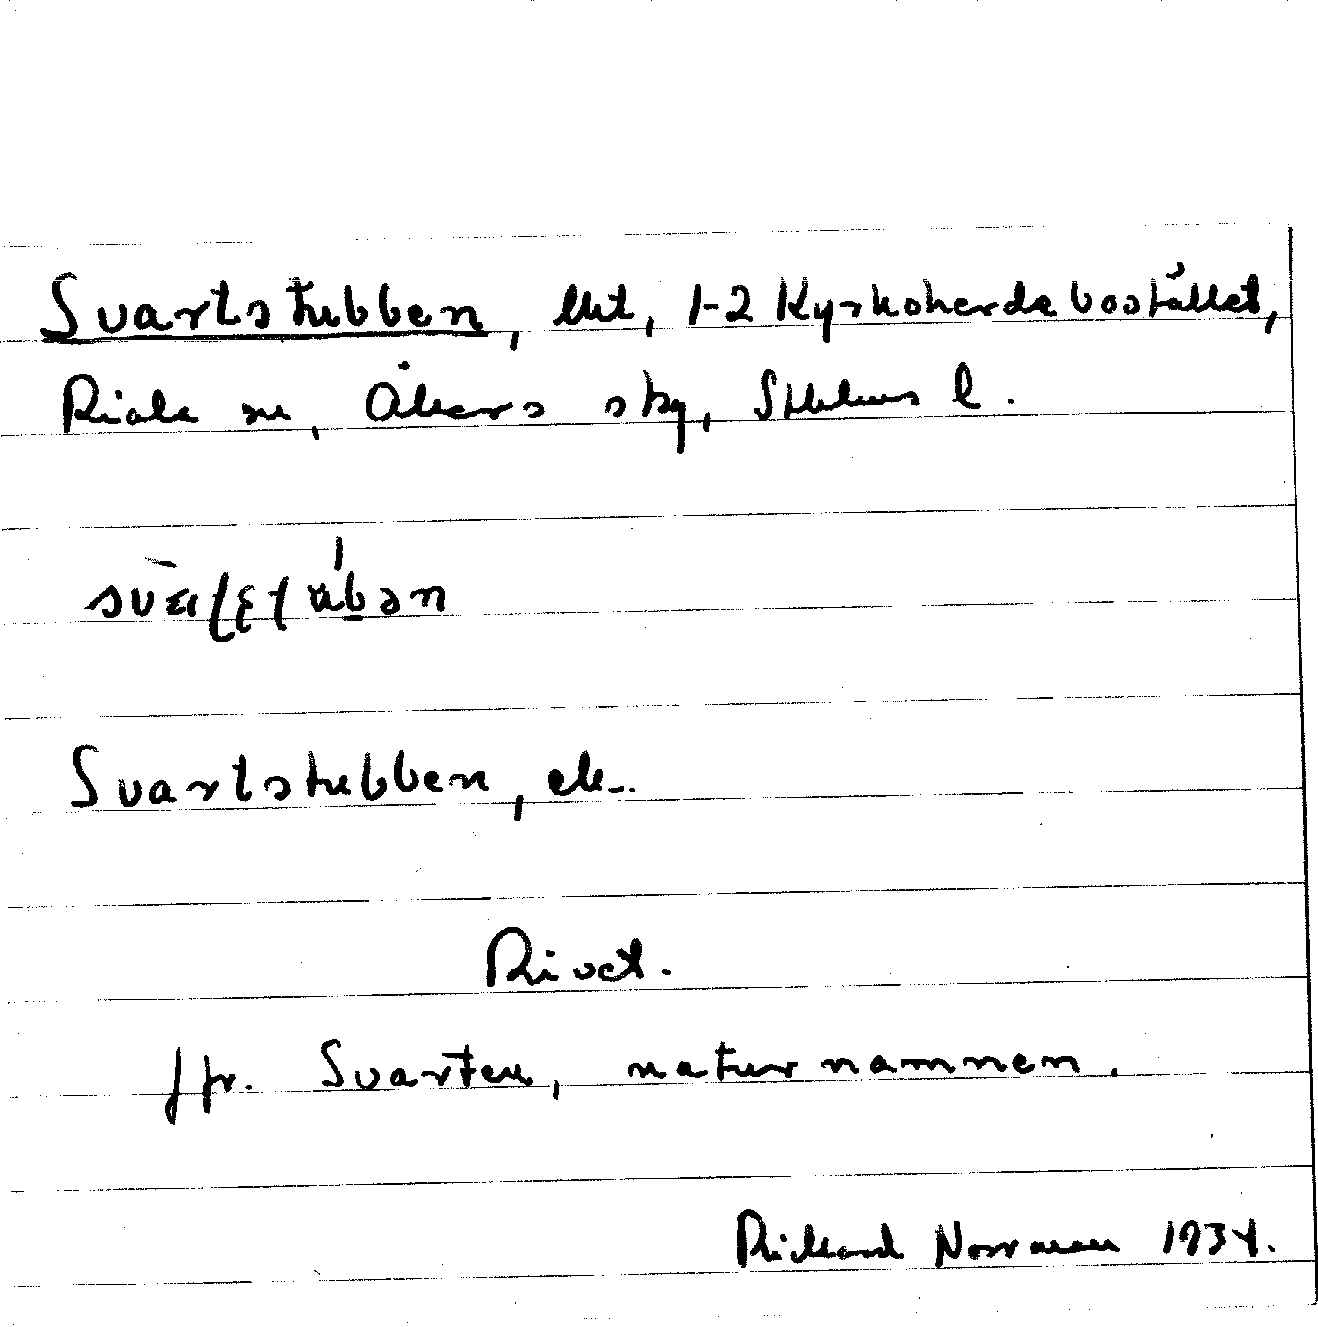 Svartstubben, lht, 1-2 Kyrkoherdebostället,
Riala sn, Åkers sky, Sthlms l.
Svartstubben, ek.
Rivet.
Jfr. Svarten, naturnamnen.
Rickard Norrman 1934.